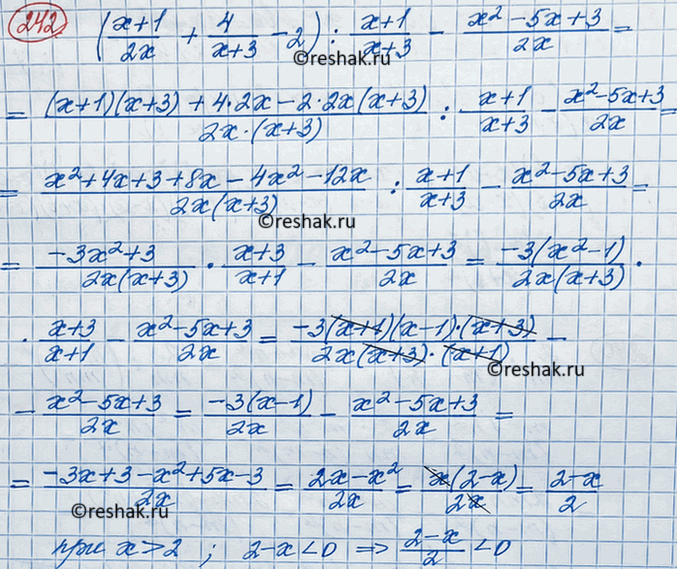 242 ((x+1)/(2x) + 4/(x+3) - 2) : (x+1)/(x+3) - (x²-5x+3)/(2x) =
©reshak.ru
= ((x+1)(x+3) + 4·2x - 2·2x(x+3))/(2x·(x+3)) : (x+1)/(x+3) - (x²-5x+3)/(2x) =
= (x²+4x+3+8x-4x²-12x)/(2x(x+3)) : (x+1)/(x+3) - (x²-5x+3)/(2x) =
©reshak.ru
= (-3x²+3)/(2x(x+3)) · (x+3)/(x+1) - (x²-5x+3)/(2x) = (-3(x²-1))/(2x(x+3)) ·
· (x+3)/(x+1) - (x²-5x+3)/(2x) = (-3(x+1)(x-1)·(x+3))/(2x(x+3)·(x+1)) -
©reshak.ru
- (x²-5x+3)/(2x) = (-3(x-1))/(2x) - (x²-5x+3)/(2x) =
= (-3x+3-x²+5x-3)/(2x) = (2x-x²)/(2x) = (x(2-x))/(2x) = (2-x)/2
©reshak.ru
при x>2 ; 2-x<0 ⇒ (2-x)/2 <0